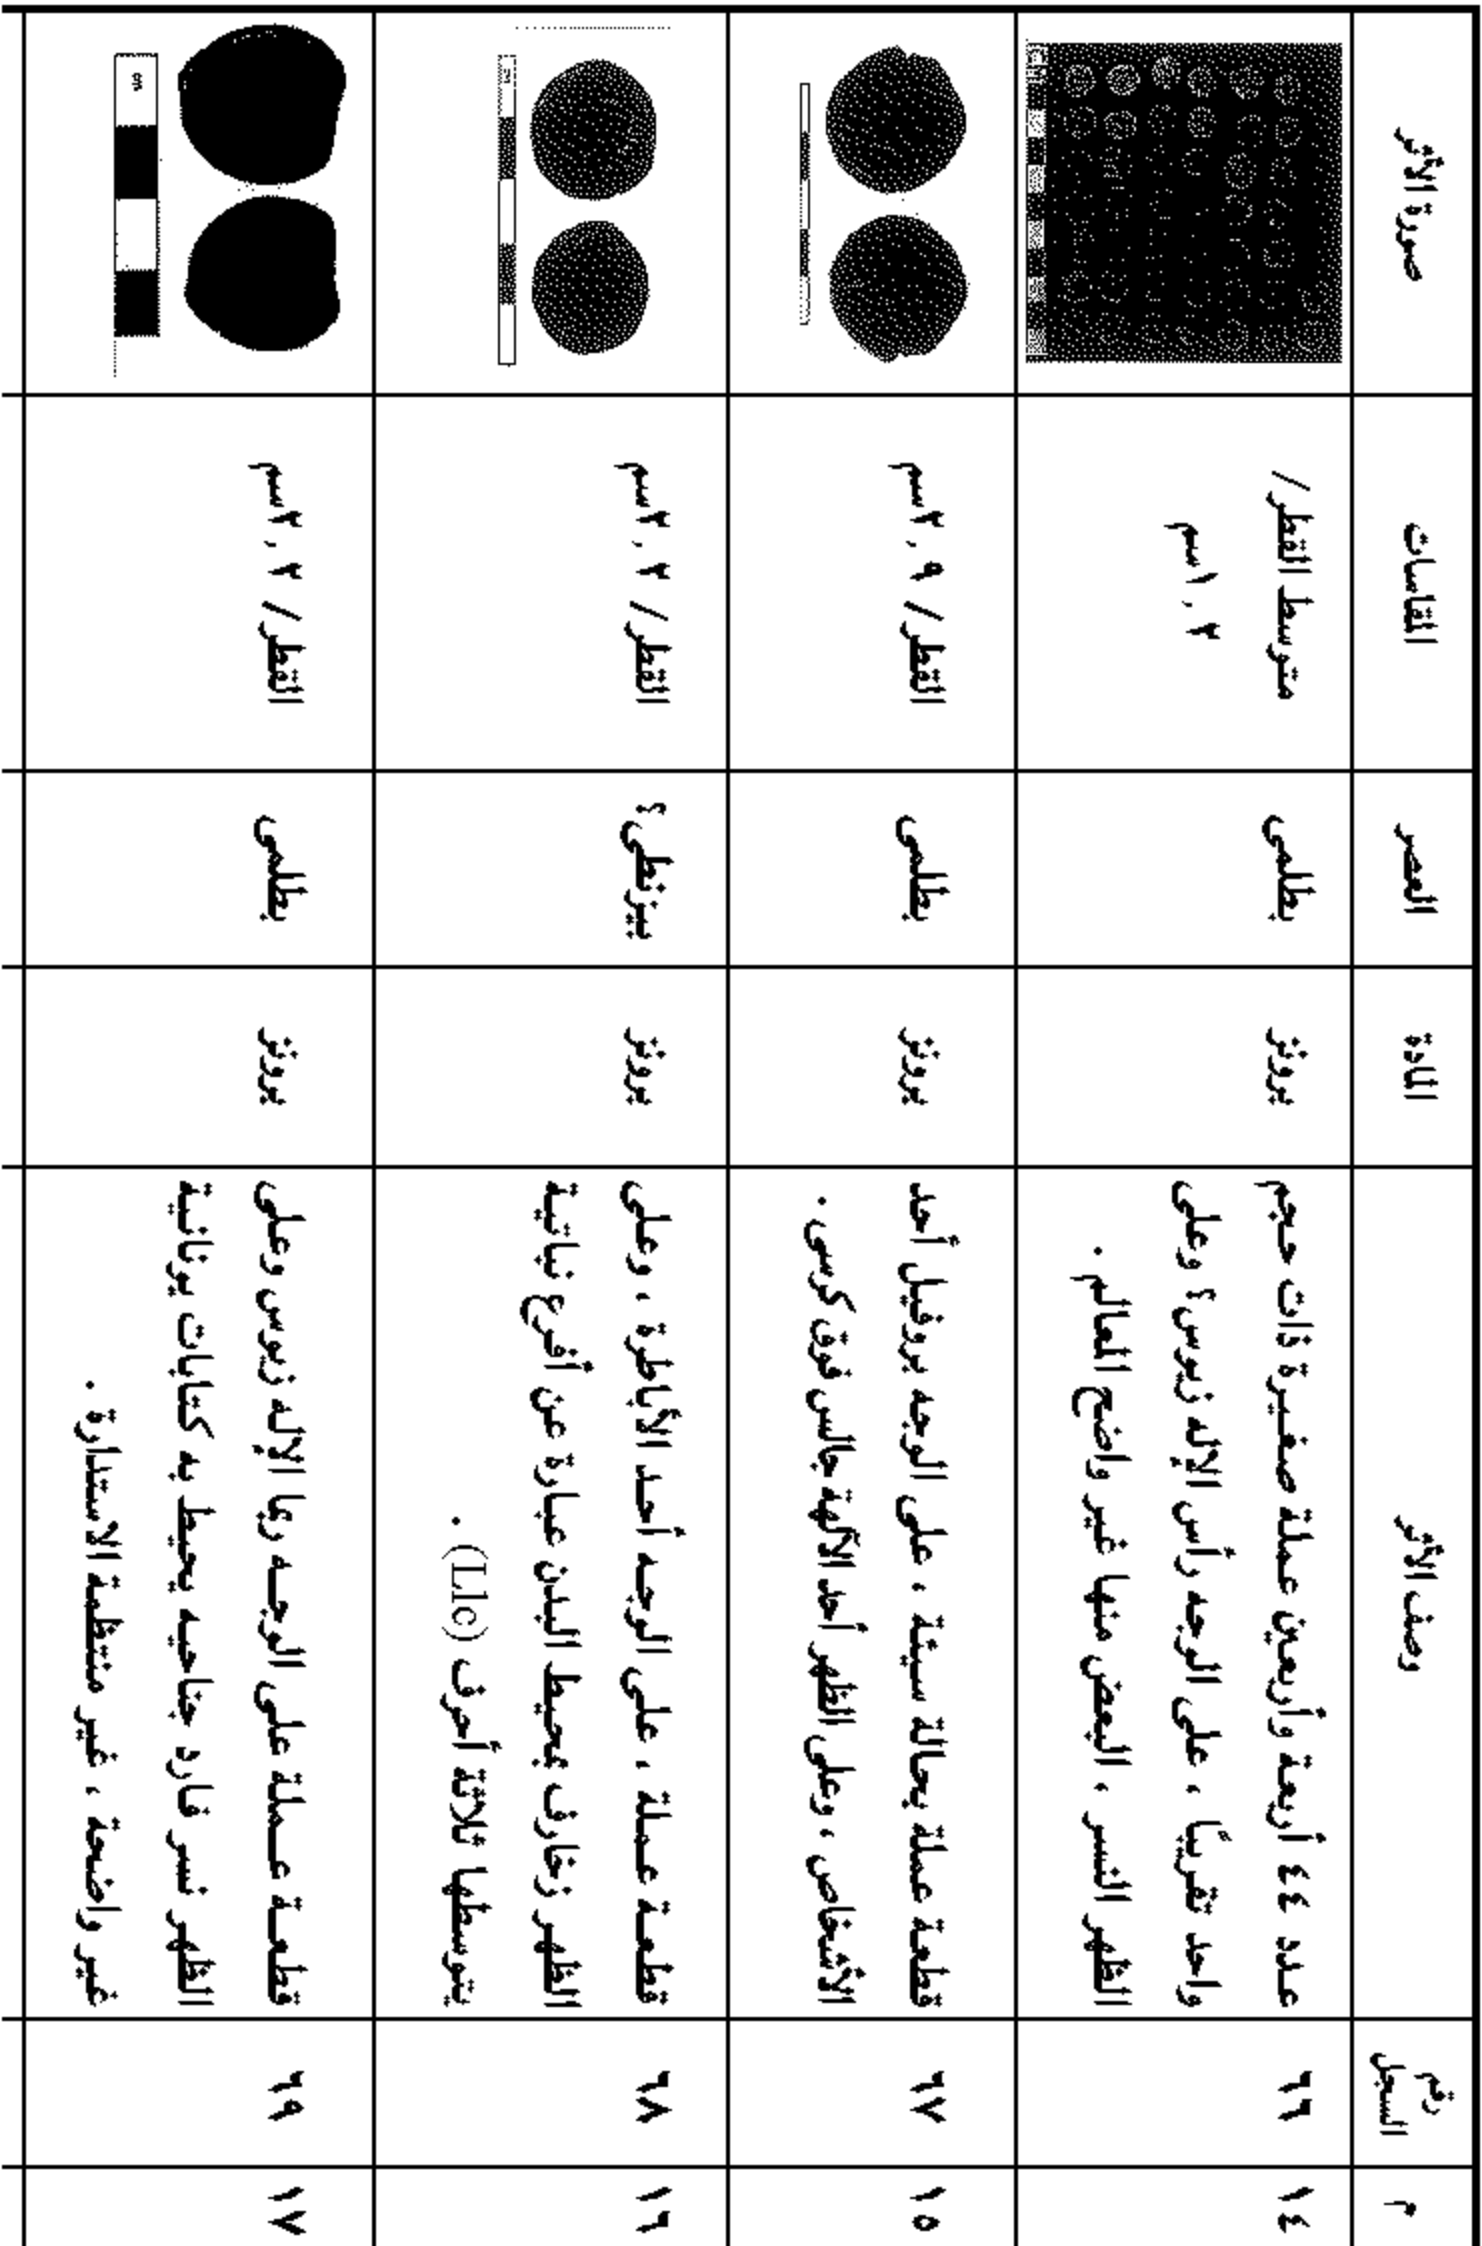 م
رقم
السجل
وصف الأثر
المادة
العصر
المقاسات
صورة الأثر
١٤
٦٦
عدد ٤٤ أربعة وأربعين عملة صغيرة ذات حجم
واحد تقريبًا ، على الوجه رأس الإله زيوس؟ وعلى
الظهر النسر ، البعض منها غير واضح المعالم .
برونز
بطلمى
متوسط القطر/
١,٢سم
١٥
٦٧
قطعة عملة بحالة سيئة ، على الوجه بروفيل أحد
الأشخاص ، وعلى الظهر أحد الآلهة جالس فوق كرسى .
برونز
بطلمى
القطر/ ٢,٩سم
١٦
٦٨
قطعة عملة ، على الوجه أحد الأباطرة ، وعلى
الظهر زخارف يحيط البدن عبارة عن أفرع نباتية
يتوسطها ثلاثة أحرف (Llc) .
برونز
بيزنطى؟
القطر/ ٢,٢سم
١٧
٦٩
قطعة عملة على الوجه ربما الإله زيوس وعلى
الظهر نسر فارد جناحيه يحيط به كتابات يونانية
غير واضحة ، غير منتظمة الاستدارة .
برونز
بطلمى
القطر/ ٢,٢سم
cm